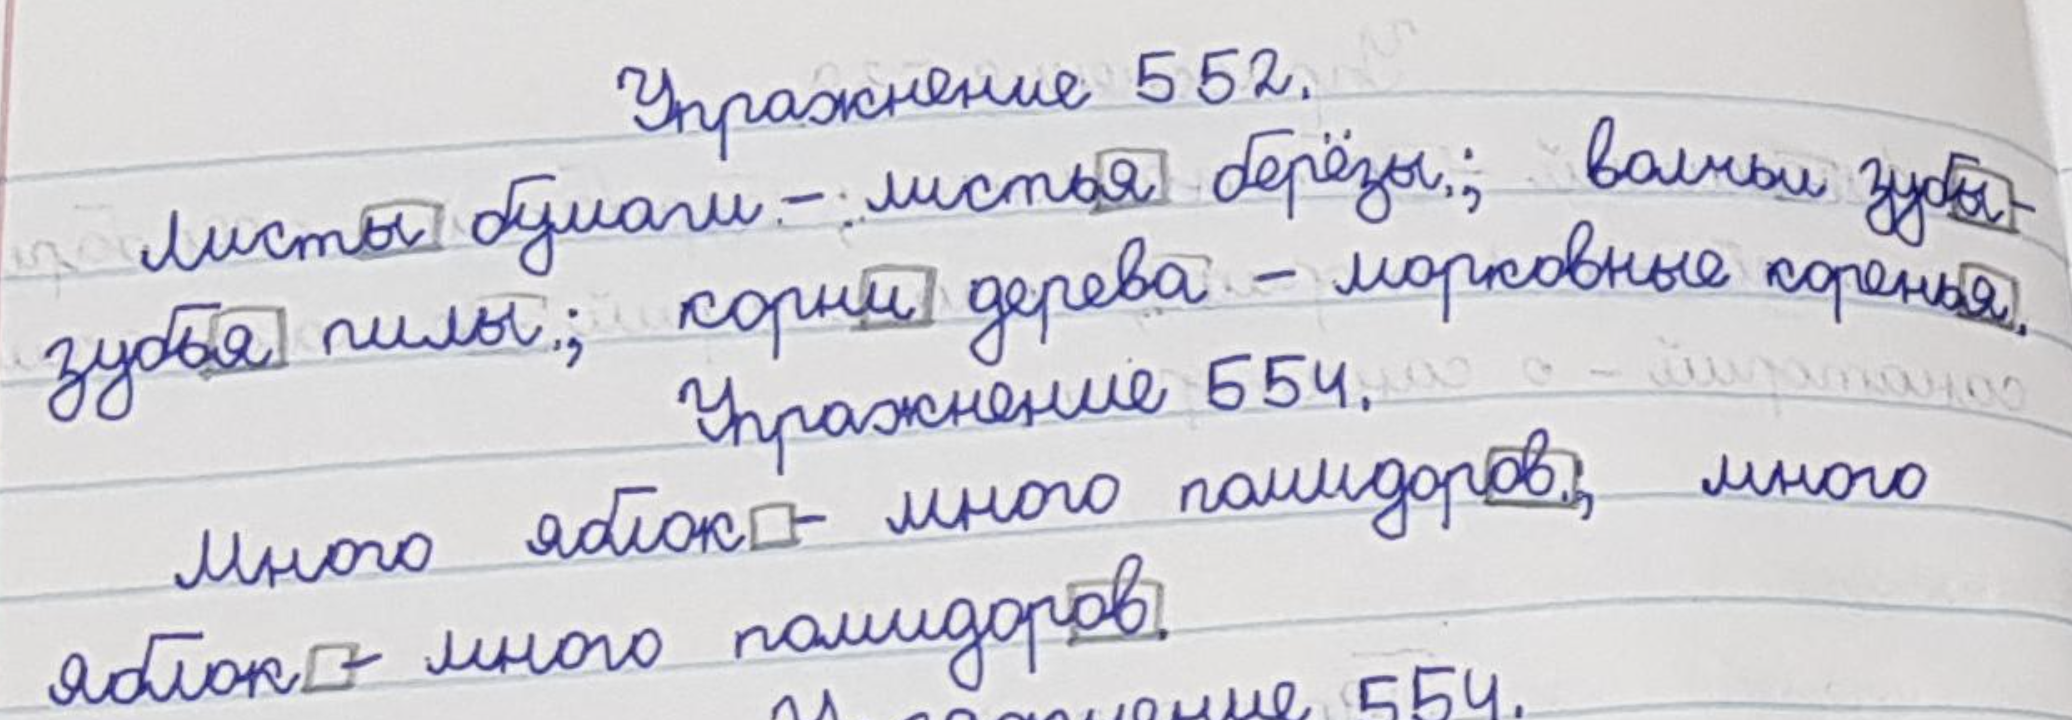 Упражнение 552.
Листы бумаги. - листья берёзы.; волчьи зубы-
зубья пилы.; корни дерева - морковные коренья.
Упражнение 554.
Много яблок - много помидоров.; много
яблок - много помидоров.
Упражнение 554.